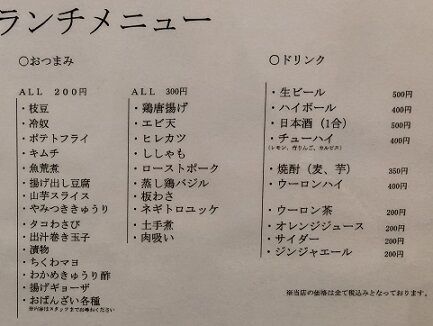 ランチメニュー
○おつまみ
ALL 200円
・枝豆
・冷奴
・ポテトフライ
・キムチ
・魚荒煮
・揚げ出し豆腐
・山芋スライス
・やみつききゅうり
・タコわさび
・出汁巻き玉子
・漬物
・ちくわマヨ
・わかめきゅうり酢
・揚げギョーザ
・おばんざい各種
※内容はスタッフまでお尋ねください
ALL 300円
・鶏唐揚げ
・エビ天
・ヒレカツ
・ししゃも
・ローストポーク
・蒸し鶏バジル
・板わさ
・ネギトロユッケ
・土手煮
・肉吸い
○ドリンク
・生ビール 500円
・ハイボール 400円
・日本酒(1合) 500円
・チューハイ 400円
(レモン、青りんご、カルピス)
・焼酎(麦、芋) 350円
・ウーロンハイ 400円
・ウーロン茶 200円
・オレンジジュース 200円
・サイダー 200円
・ジンジャエール 200円
※当店の価格は全て税込みとなっております。